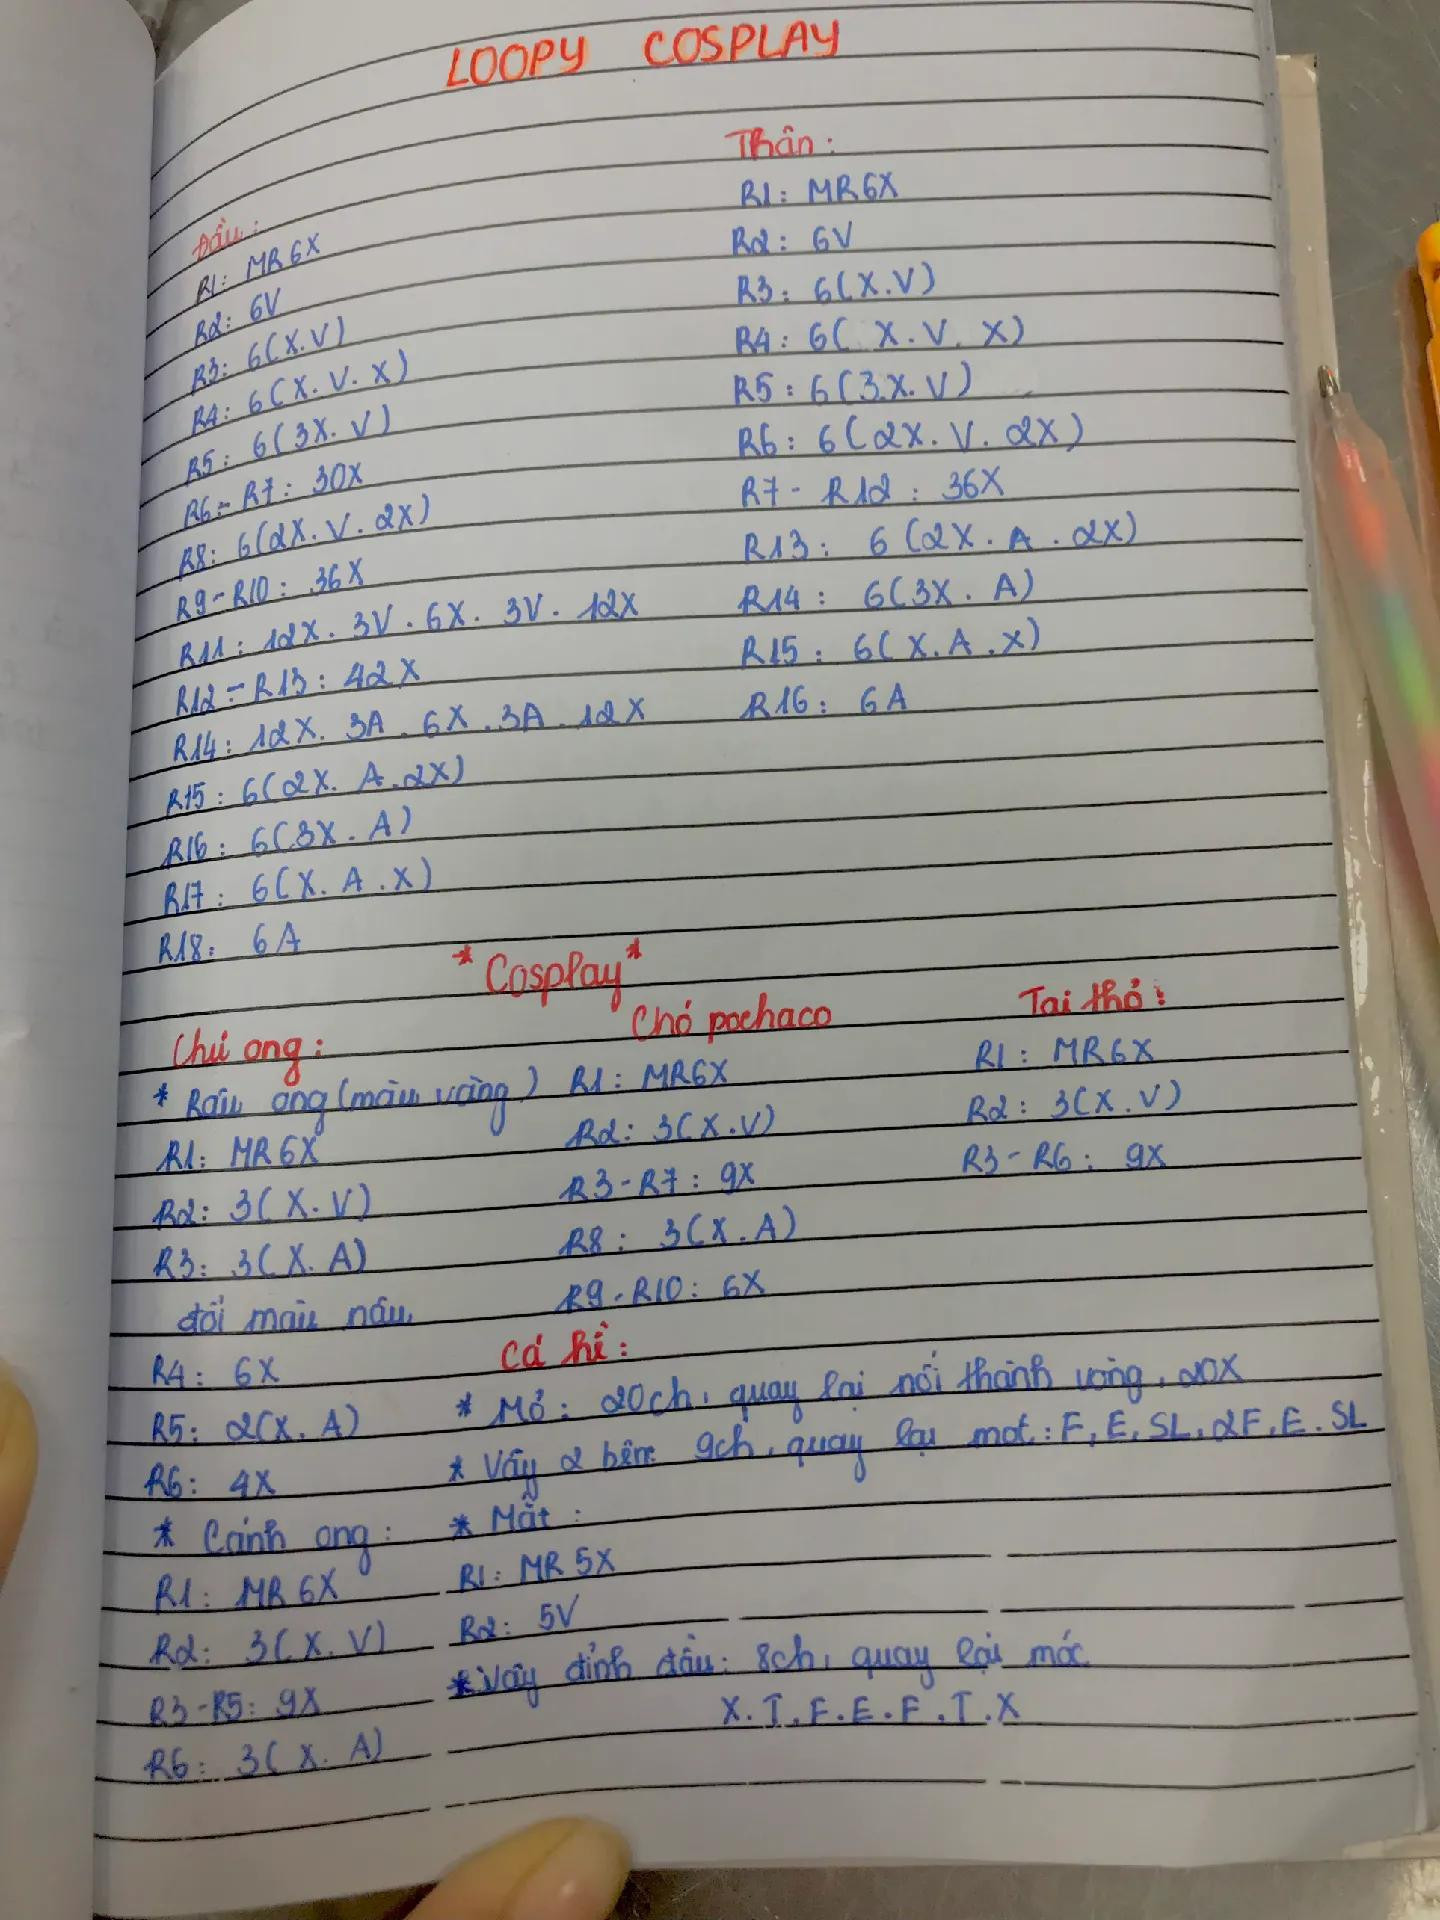 LOOPY COSPLAY
Đầu:
R1: MR6X
R2: 6V
R3: 6(X.V)
R4: 6(X.V.X)
R5: 6(3X.V)
R6-R7: 30X
R8: 6(2X.V.2X)
R9-R10: 36X
R11: 12X.3V.6X.3V.12X
R12-R13: 42X
R14: 12X.3A.6X.3A.12X
R15: 6(2X.A.2X)
R16: 6(3X.A)
R17: 6(X.A.X)
R18: 6A
Thân:
R1: MR6X
R2: 6V
R3: 6(X.V)
R4: 6(X.V.X)
R5: 6(3.X.V)
R6: 6(2X.V.2X)
R7-R12: 36X
R13: 6(2X.A.2X)
R14: 6(3X.A)
R15: 6(X.A.X)
R16: 6A
*Cosplay*
Chú ong:
* Râu ong (màu vàng)
R1: MR6X
R2: 3(X.V)
R3: 3(X.A)
đổi màu nâu
R4: 6X
R5: 2(X.A)
R6: 4X
* Cánh ong:
R1: MR6X
R2: 3(X.V)
R3-R5: 9X
R6: 3(X.A)
Chó pochaco
R1: MR6X
R2: 3(X.V)
R3-R7: 9X
R8: 3(X.A)
R9-R10: 6X
Tai thỏ:
R1: MR6X
R2: 3(X.V)
R3-R6: 9X
Cá hề:
* Mỏ: 20ch, quay lại nối thành vòng, 20X
* Vây 2 bên: 9ch, quay lại mot: F, E, SL, 2F, E. SL
* Mắt:
R1: MR 5X
R2: 5V
* Vây đỉnh đầu: 8ch, quay lại móc
X.T.F.E.F.T.X